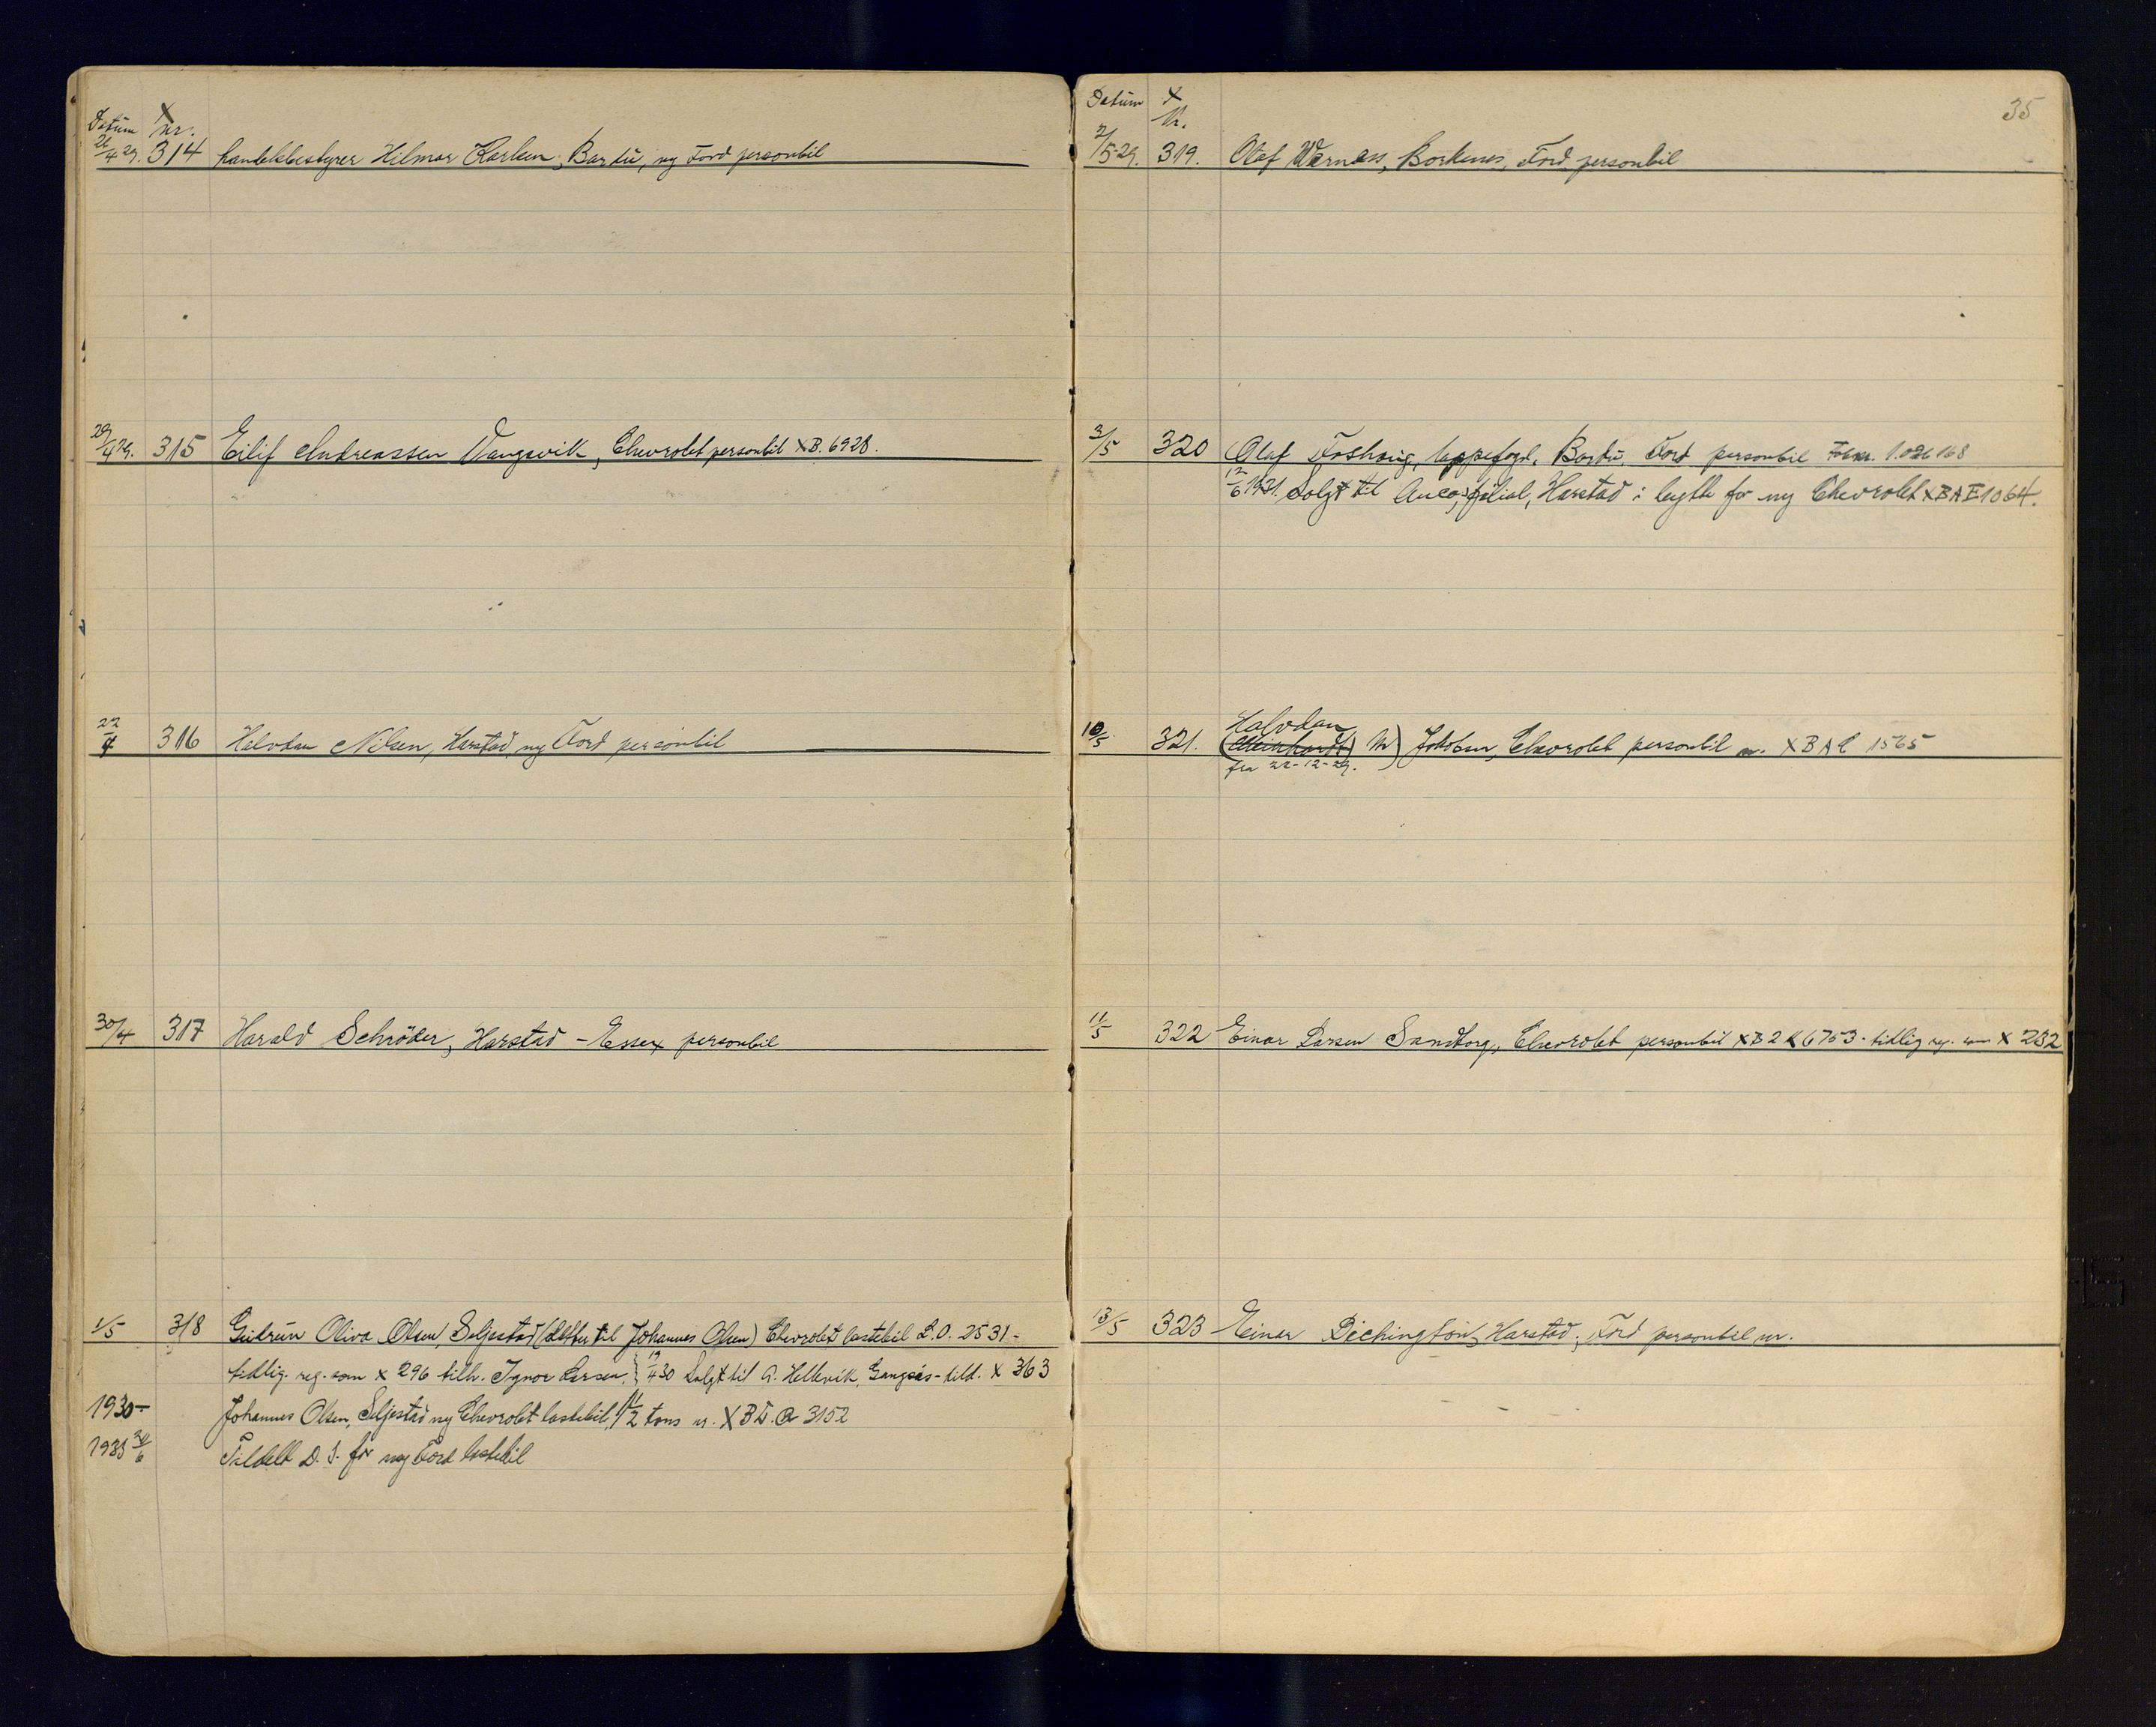 Datum X nr.
26/4 29. 314 handelsbestyrer Hilmar Karlsen, Bardu, ny Ford personbil
29/4 29. 315 Eilif Andreassen Vangsvik, Chevrolet personbil XB. 6928.
22/4 316 Halvdan Nilsen, Harstad, ny Ford personbil
30/4 317 Harald Schröder, Harstad - Essex personbil
1/5 318 Gudrun Oliva Olsen, Seljestad (datter til Johannes Olsen) Chevrolet lastebil L.O. 2531 -
tidlig. reg. som X 296 tilh. Ingvar Larsen. } 19/4 30 Solgt til A. Hellevik, Gangsås - tild. X 363
1930 - Johannes Olsen, Seljestad ny Chevrolet lastebil, 1 1/2 tons nr. X 3152
1935 30/6 Tildelt D. S. for ny Ford lastebil
35
Datum X Nr.
2/5-29. 319. Olaf Wærness, Borkenes, Ford personbil
3/5 320 Olaf Foshaug, lappefogd, Bardu, Ford personbil 1.026168
12/6 1931. Solgt til filial, Harstad i bytte for ny Chevrolet XBAE1064.
Halvdan
10/5 321. (Meinhardt) M) Jakobsen, Chevrolet personbil nr. XBAE 1565
fra 22-12-29.
11/5 322 Einar Larsen Sandtorg, Chevrolet personbil XB2K6753 - tidlig reg. som X 232
13/5 323 Einar Harstad, Ford personbil nr.